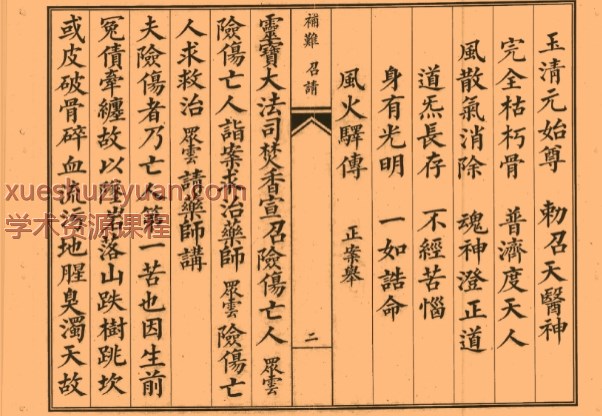 玉清元始尊　勅召天醫神
完全枯朽骨　普濟度天人
風散氣消除　魂神澄正道
道炁長存　不經苦惱
身有光明　一如誥命
風火驛傳　正案舉
補難 召請
二
靈寶大法司焚香宣召險傷亡人 眾雲
險傷亡人詣案求治藥師 眾雲 險傷亡
人求救治 眾雲 請藥師講
夫險傷者乃亡人第一苦也因生前
冤債牽纏故以墜岩落山跌樹跳坎
或皮破骨碎血流滿地腥臭濁天故
xueshuziyuan.com
学术资源课程